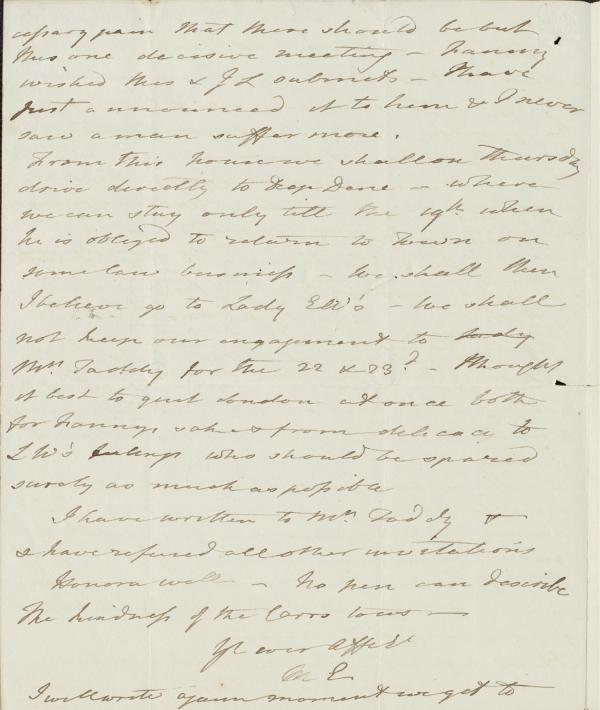 cessary pain that there should be but
this one decisive meeting – Fanny
wished this & J L submits – I have
just announced it to him & I never
saw a man suffer more.
From this house we shall on Thursday
drive directly to Deep Dene – where
we can stay only till the 19th when
he is obliged to return to town on
some law business – We shall then
I believe go to Lady Eliz's – We shall
not keep our engagement to Lady
Mrs Taddy for the 22 & 23d – I thought
it best to quit London at once both
for Fannys sake & from delicacy to
LW's feelings who should be spared
surely as much as possible
I have written to Mrs Taddy &
& have refused all other invitations
Honora well – No pen can describe
the kindness of the Carrs to us –
Yr ever Affecte
M E
I will write again moment we get to